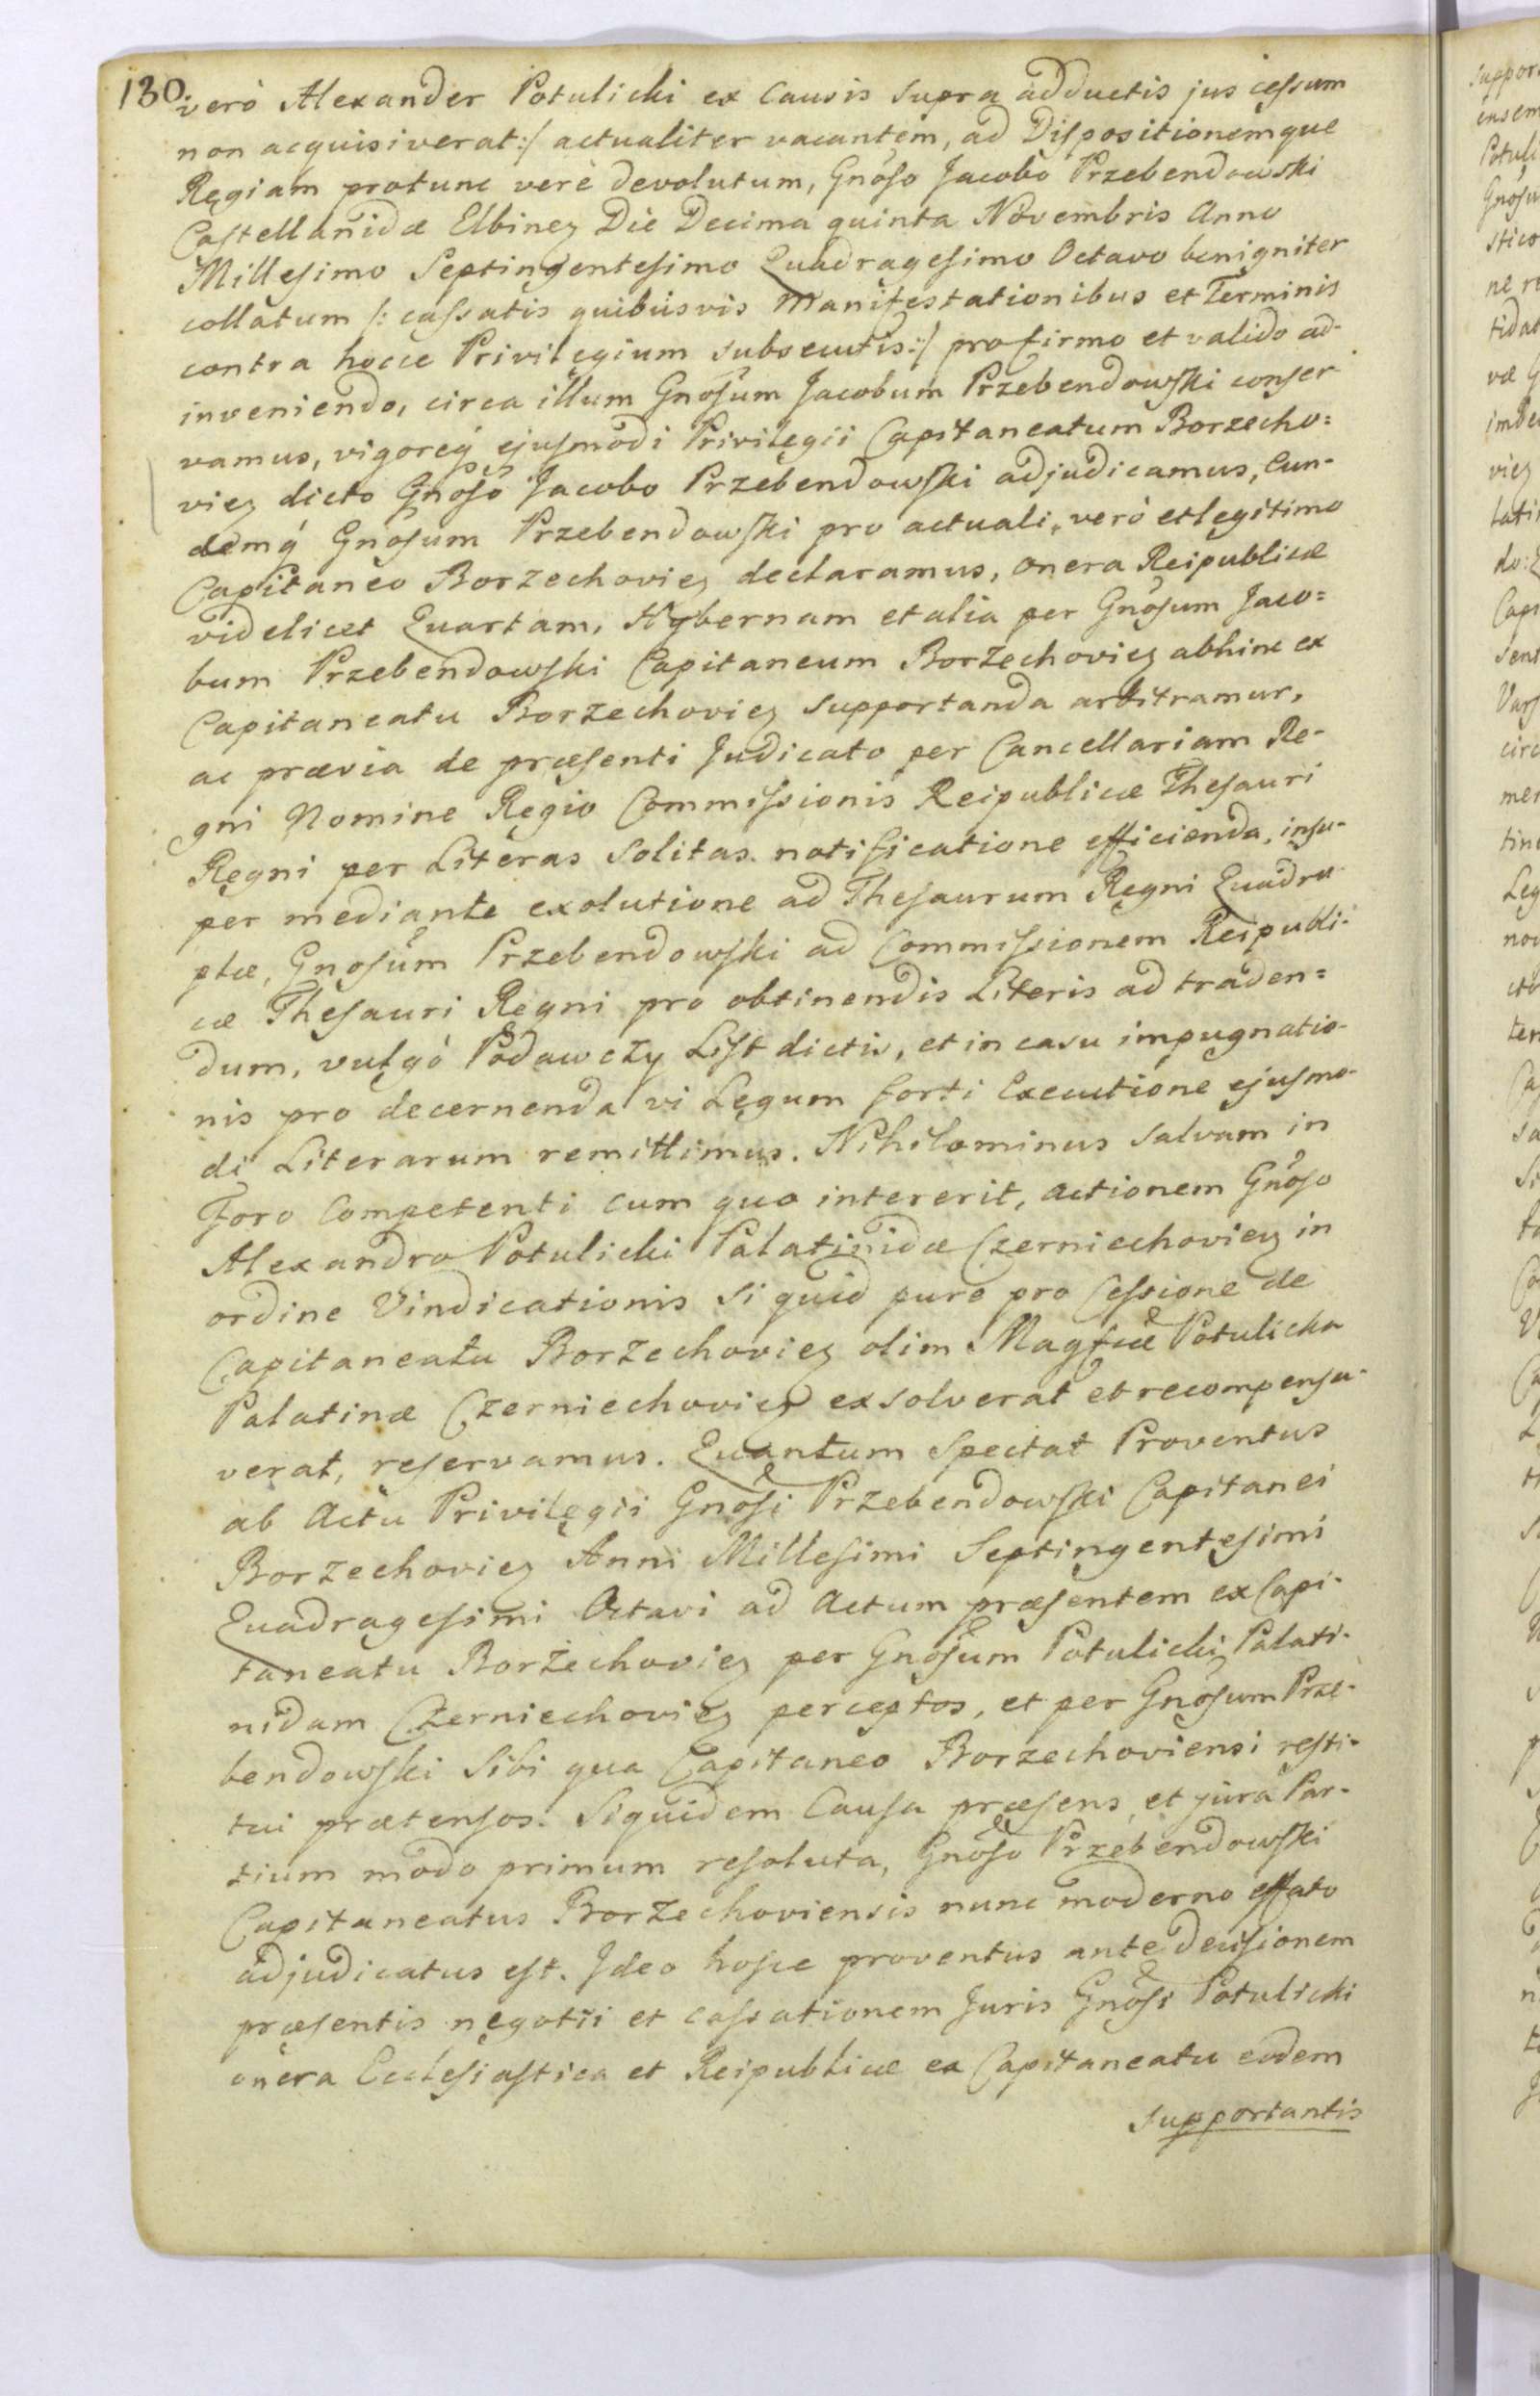 130.
verò Alexander Potulicki ex Causis supra adductis jus cessum
non acquisiverat:/ actualiter vacantem, ad Dispositionemque
Regiam protunc verè devolutum, Gnoso Jacobo Przebendowski
Castellanidæ Elbineӡ Die Decima quinta Novembris Anno
Millesimo Septingentesimo Quadragesimo Octavo benigniter
collatum /: cassatis quibusvis Manifestationibus et Terminis
contra hocce Privilegium subsecutis:/ pro firmo et valido ad-
inveniendo, circa illum Gnosum Jacobum Przebendowski conser
vamus, vigoreq́ ejusmodi Privilegii Capitaneatum Borzecho=
vieӡ dicto Gnoso Jacobo Przebendowski adjudicamus, Eun-
demq́ Gnosum Przebendowski pro actuali, verò et legitimo
Capitaneo Borzechovieӡ declaramus, onera Reipublicæ
videlicet Quartam, Hybernam et alia per Gnosum Jaco=
bum Przebendowski Capitaneum Borzechovieӡ abhinc ex
Capitaneatu Borzechovieӡ supportanda arbitramur,
ac prævia de præsenti Judicato per Cancellariam Re-
gni Nomine Regio Commissionis Reipublicæ Thesauri
Regni per Literas solitas notificatione efficienda, insu-
per mediante exolutione ad Thesaurum Regni Quadru
plæ, Gnosum Przebendowski ad Commissionem Reipubli-
cæ Thesauri Regni pro obtinendis Literis ad traden=
dum, vulgò Podawczy List dictis, et in casu impugnatio-
nis pro decernenda vi Legum forti Executione ejusmo-
di Literarum remittimus. Nihilominus salvam in
Foro Competenti cum quo intererit, actionem Gnoso
Alexandro Potulicki Palatinidæ Czerniechovieӡ in
ordine Vindicationis si quid pure pro Cessione de
Capitaneatu Borzechovieӡ olim Magfcæ Potulicka
Palatinæ Czerniechovieӡ exsolverat et recompensa-
verat, reservamus. Quantum Spectat Proventus
ab Actu Privilegii Gnosi Przebendowski Capitanei
Borzechovieӡ Anni Millesimi Septingentesimi
Quadragesimi Octavi ad Actum præsentem ex Capi-
taneatu Borzechovieӡ per Gnosum Potulicki Palati-
nidam Czerniechovieӡ perceptos, et per Gnosum Prze-
bendowski Sibi qua Capitaneo Borzechoviensi resti-
tui prætensos. Siquidem Causa præsens et jura Par-
tium modo primum resoluta, Gnoso Przebendowski
Capitaneatus Borzechoviensis nunc moderno effato
adjudicatus est. Ideo hosce proventus ante decisionem
præsentis negotii et cassationem Juris Gnosi Potulicki
onera Ecclesiastica et Reipublicæ ex Capitaneatu eodem
supportantis